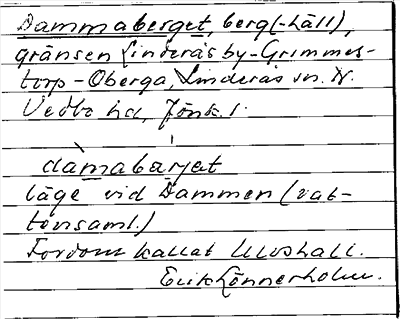 Dammaberget, berg(-häll),
gränsen Linderås by-Grimmes-
torp-Oberga, Linderås sn. N.
Vedbo hd, Jönk. l.
damabärjet
läge vid Dammen (vat-
tensaml.)
Fordom kallat Ulvshall.
Erik Lönnerholm.